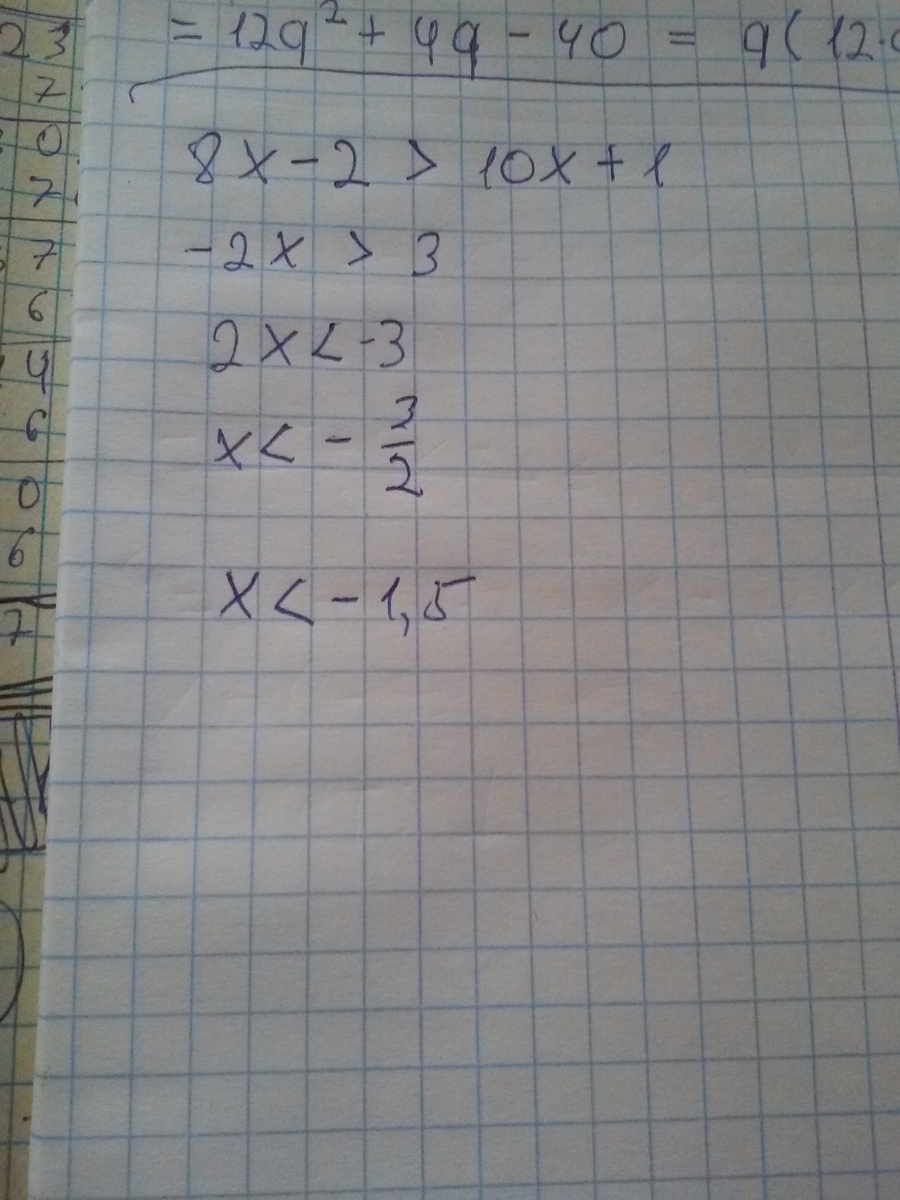 = 12q² + 4q - 40 = q(12·
8x - 2 > 10x + 1
-2x > 3
2x < -3
x < - 3/2
x < - 1,5
23
7
0
7
7
6
4
6
0
6
7